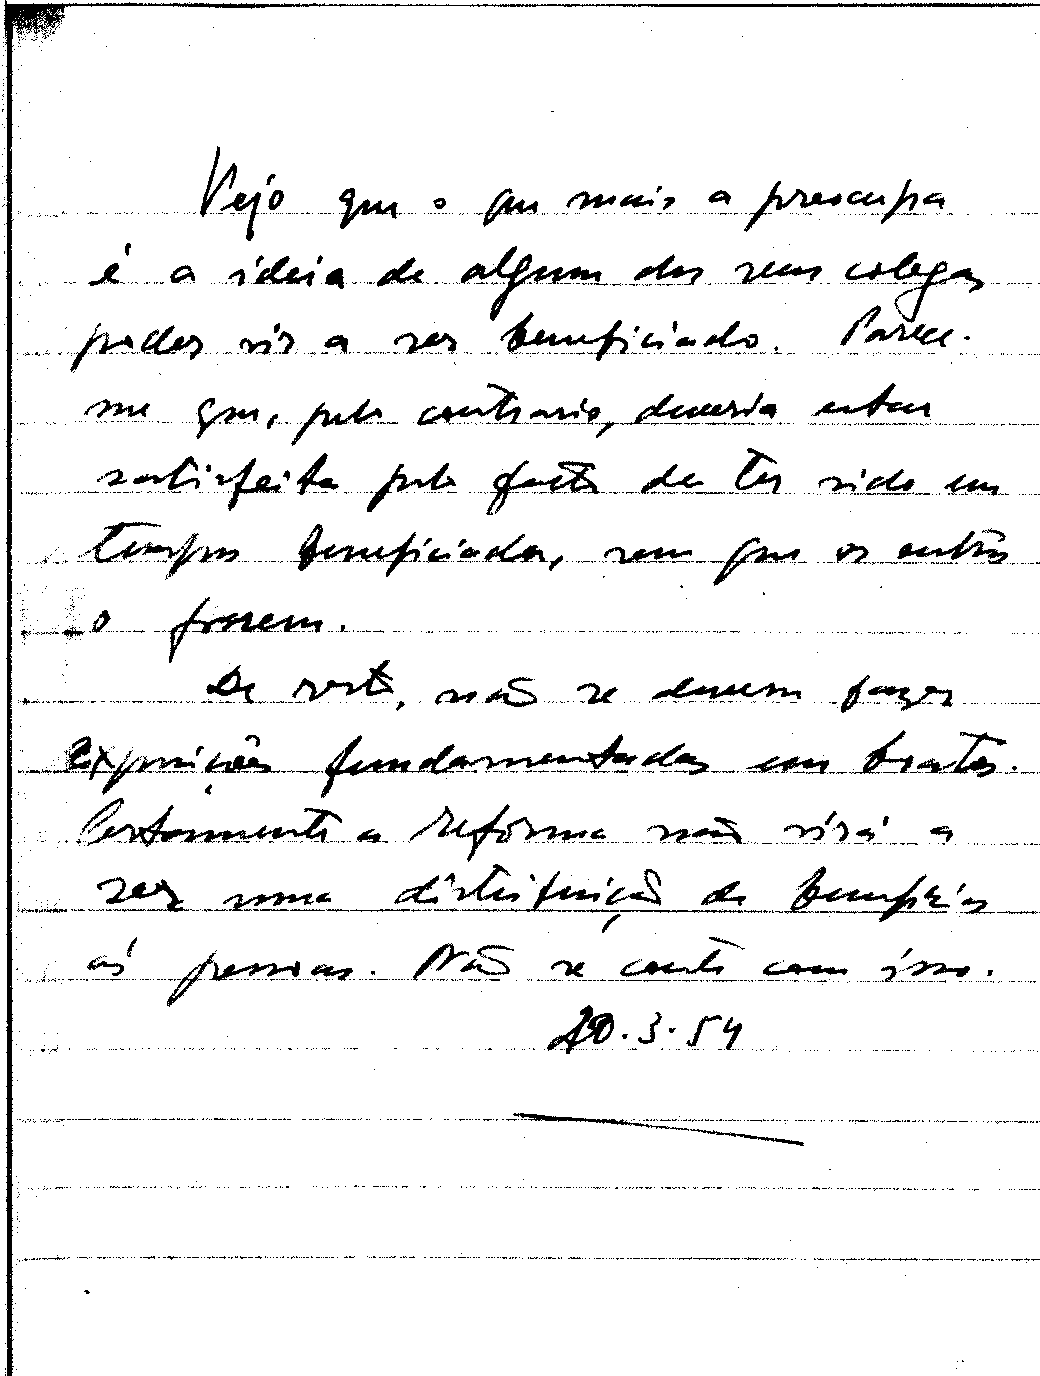 Vejo que o que mais a preocupa
é a ideia de algum dos seus colegas
poder vir a ser beneficiado. Parece-
me que, pelo contrario, deveria estar
satisfeita pelo facto de ter sido em
tempos beneficiada, sem que os outros
o fossem.
De resto, não se devem fazer
exposições fundamentadas em boatos.
Certamente a reforma não virá a
ser uma distribuição de beneficios
ás pessoas. Não se conte com isso.
20.3.54